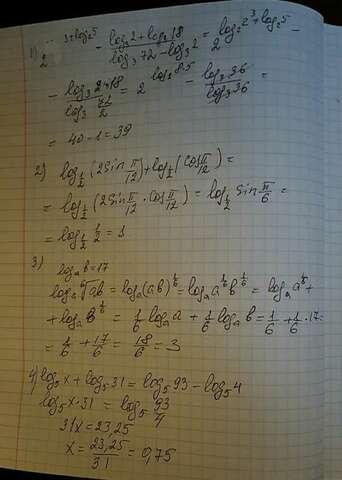 1) 2^{3+log_2 5} - (log_3 2 + log_3 18)/(log_3 72 - log_3 2) = 2^{log_2 2^3 + log_2 5} -
- (log_3 2*18)/(log_3 72/2) = 2^{log_2 8·5} - (log_3 36)/(log_3 36) =
= 40 - 1 = 39
2) log_{1/2} (2Sin π/12) + log_{1/2} (Cos π/12) =
= log_{1/2} (2Sin π/12 · Cos π/12) = log_{1/2} Sin π/6 =
= log_{1/2} 1/2 = 1
3)
log_a b = 17
log_a ⁶√ab = log_a (ab)^{1/6} = log_a a^{1/6} b^{1/6} = log_a a^{1/6} +
+ log_a b^{1/6} = 1/6 log_a a + 1/6 log_a b = 1/6 + 1/6 · 17 =
= 1/6 + 17/6 = 18/6 = 3
4) log_5 x + log_5 31 = log_5 93 - log_5 4
log_5 x·31 = log_5 93/4
31x = 23,25
x = 23,25/31 = 0,75